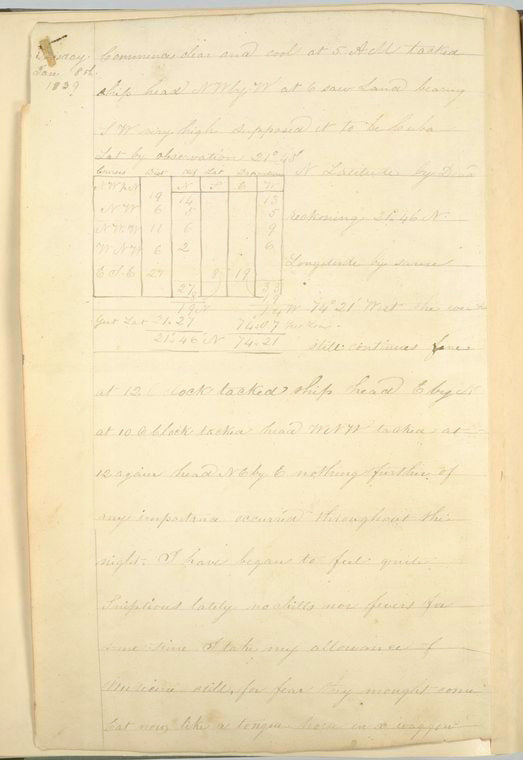 Tuesday
Jan 8th
1839
Commences clear and cool at 5 AM tacked
ship head NW by W at 6 saw Land bearing
S W very high supposed it to be Cuba
Lat by observation 21° 48'
N Latitude by Dead
Courses Dist Dif Lat Departure
N S E W
NW by N 19 14 13
NW 6 5 5
NWW 11 6 9
WNW 6 2 6
ESE 27 8 19
27 33
reckoning 21° 46 N
Longitude by
19 N 14 W 74° 21' West the
Yest Lat 21.27 74.07
21.46 N 74.21
still continues fine
at 12 O clock tacked ship head E by N
at 10 O Clock tacked head WNW tacked at
12 again head NE by E nothing further of
any importance occurred throughout the
night. I have began to feel quite
lately no chills nor fevers for
some time I take my allowance of
still, for fear they mought come
Eat now like a horse in a waggon